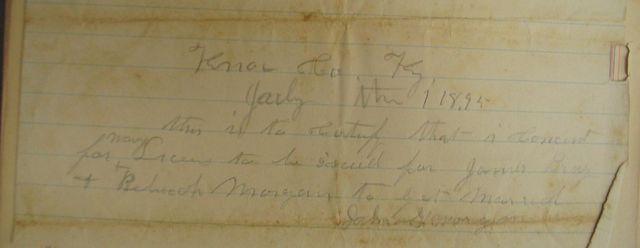 Knox Co, Ky,
July the 1 1895
may this is to Certify that i Concent
for License to be isued for James Bray
+ Beluech Morgan to get Married
John G morgan